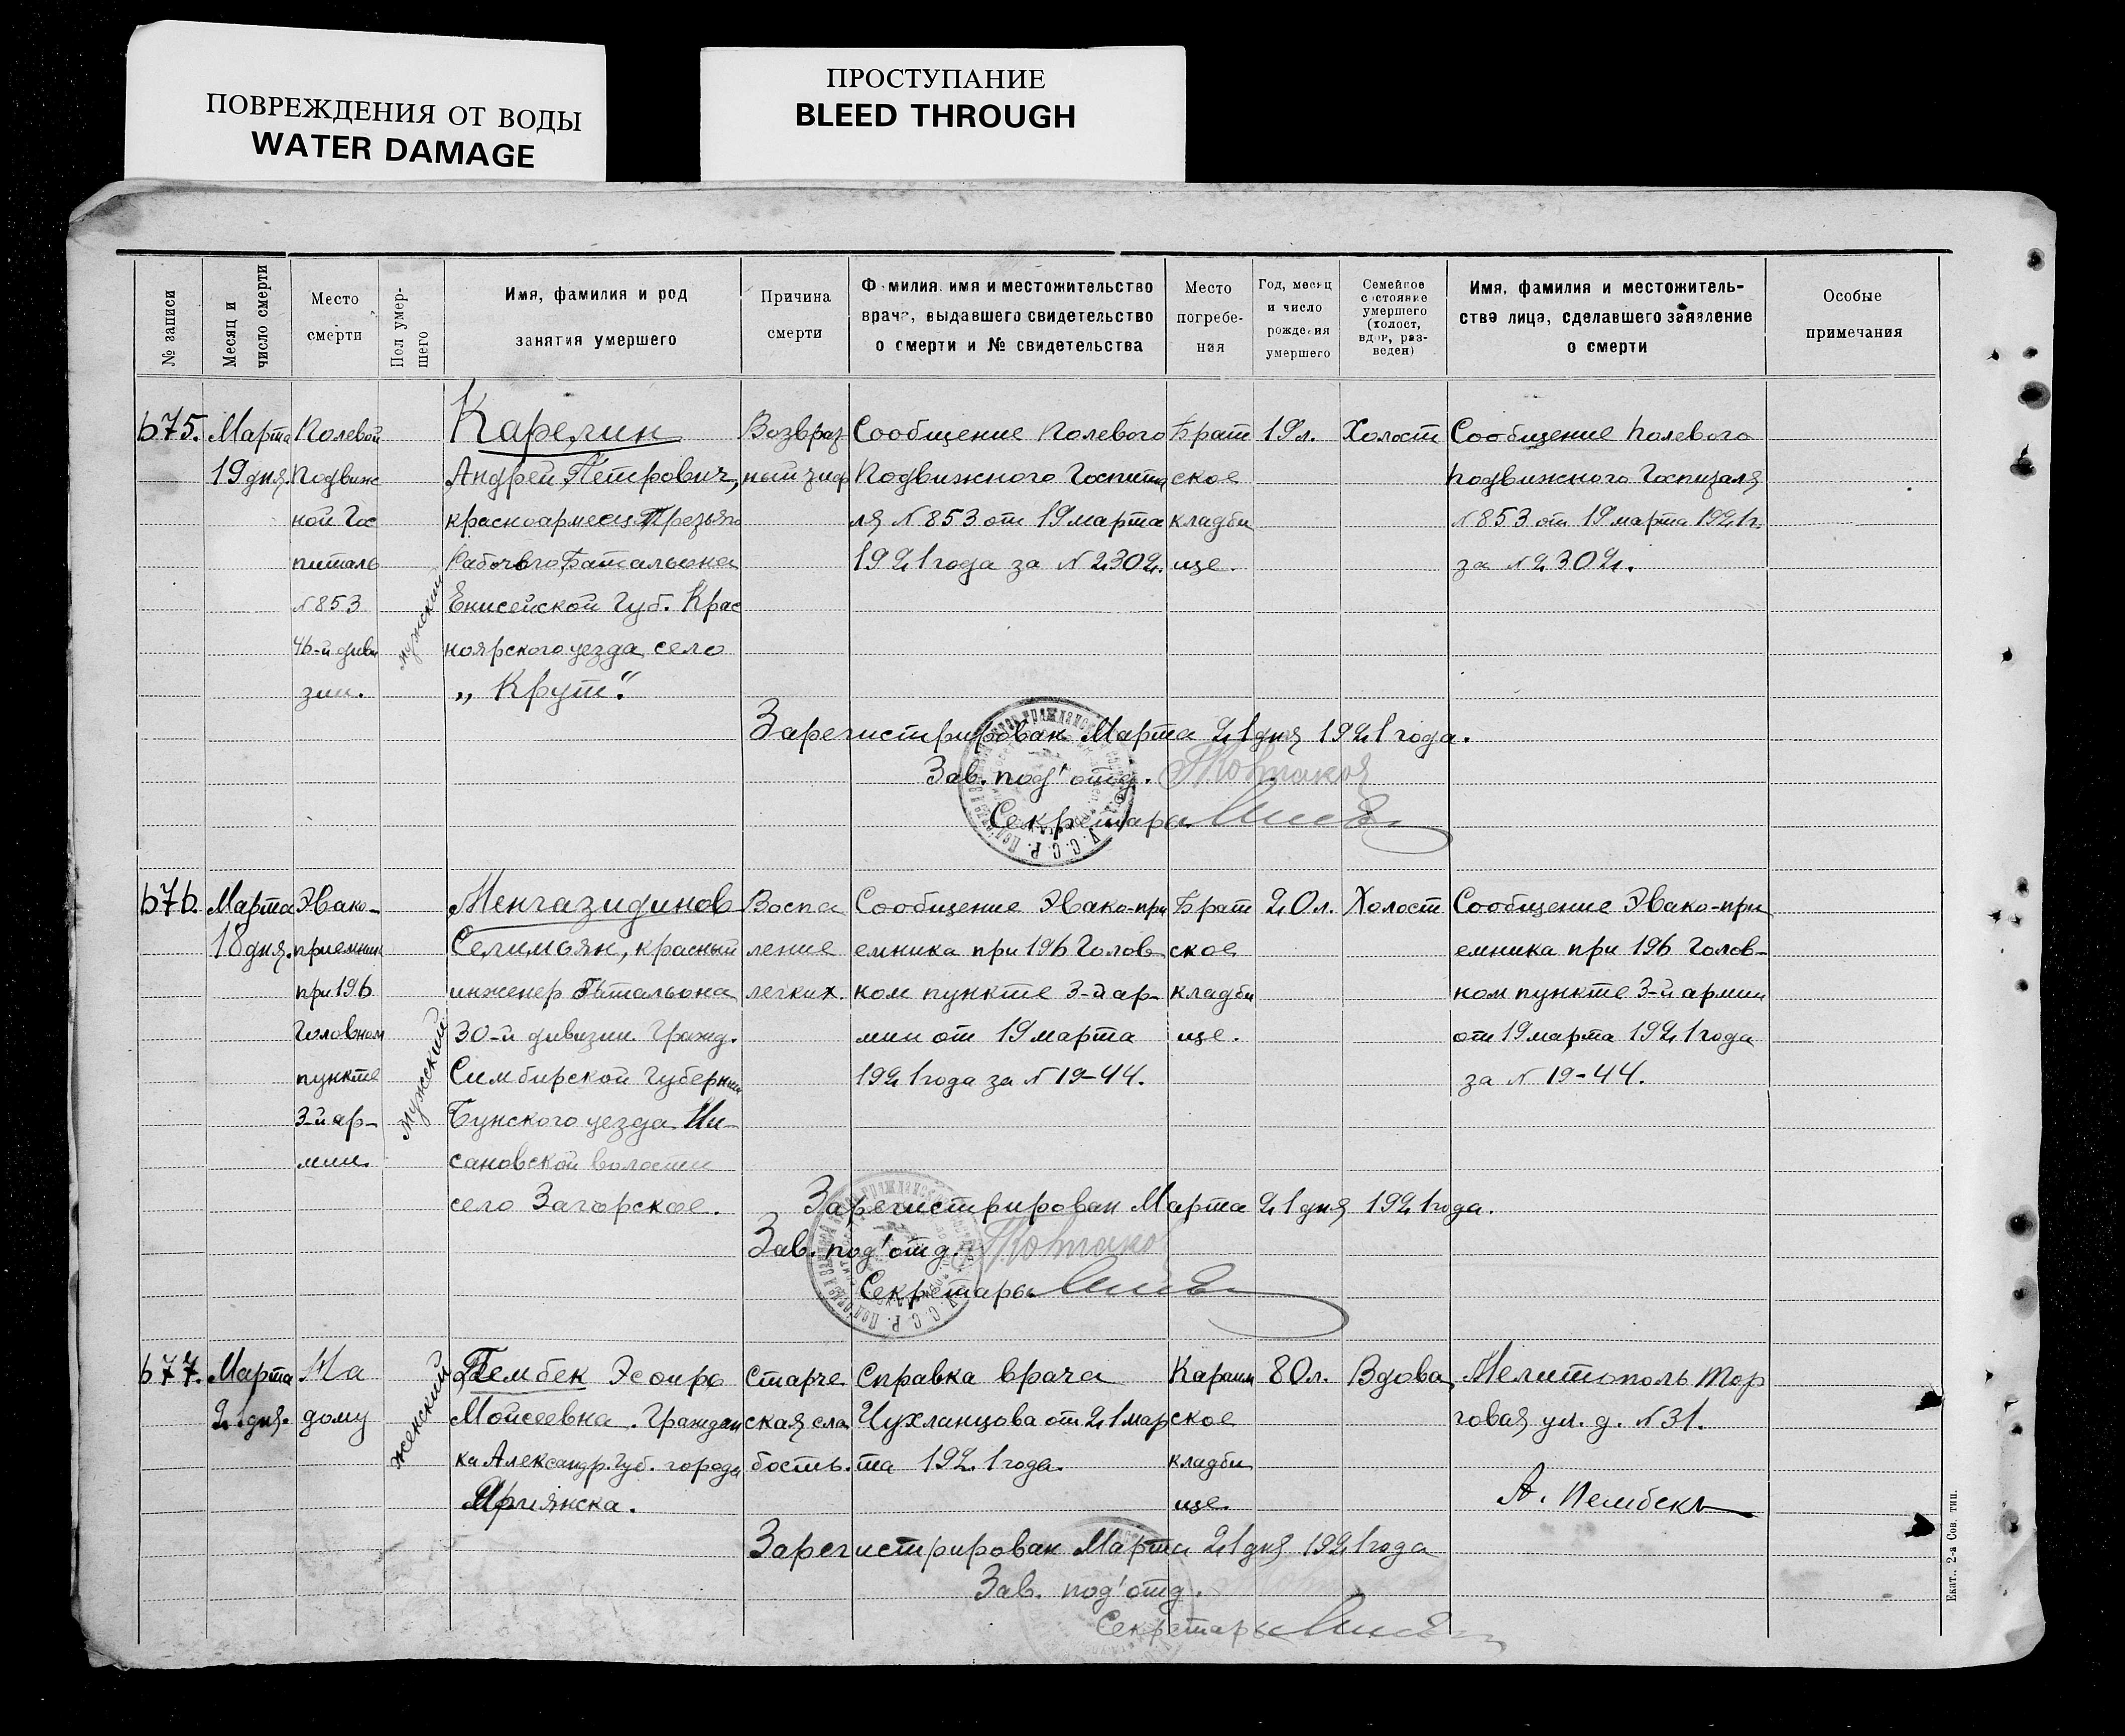 ПОВРЕЖДЕНИЯ ОТ ВОДЫ
WATER DAMAGE
ПРОСТУПАНИЕ
BLEED THROUGH
№ записи
Месяц и
число смерти
Место
смерти
Пол умер-
шего
Имя, фамилия и род
занятия умершего
Причина
смерти
Фамилия, имя и местожительство
врача, выдавшего свидетельство
о смерти и № свидетельства
Место
погребе-
ния
Год, месяц
и число
рождения
умершего
Семейное
состояние
умершего
(холост,
вдов, раз-
веден)
Имя, фамилия и местожитель-
ства лица, сделавшего заявление
о смерти
Особые
примечания
675.
Марта
19 дня.
Полевой
Подвиж
ной Гос
питаль
№ 853
46-й диви
зии.
мужский
Карелин
Андрей Петрович,
красноармеец
Рабочего Батальона
Енисейской Губ. Крас
ноярского уезда село
„Крут“.
Возвраз
ный тиф
Сообщение Полевого
Подвижного Госпита
ля № 853 от 19 марта
1921 года за № 2302.
Брат
ское
кладби
ще.
19 л.
Холост
Сообщение Полевого
Подвижного Госпиталя
№ 853 от 19 марта 1921 г.
за № 2302.
Зарегистрирован Марта 21 дня 1921 года.
Зав. под'отд.
Секретарь
676.
Марта
18 дня.
Эвако-
приемник
при 196
Головном
пункте
3-й ар-
мии.
мужский
Менгазидинов
Селимьян, красный
инженер Батальона
30-й дивизии. Гражд.
Симбирской Губернии
Бунского уезда
сановской волости
село Загорское.
Воспа
ление
легких.
Сообщение Эвако-при
емника при 196 Голов
ном пункте 3-й ар-
мии от 19 марта
1921 года за № 19-44.
Брат
ское
кладби
ще.
20 л.
Холост
Сообщение Эвако-при
емника при 196 Голов-
ном пункте 3-й армии
от 19 марта 1921 года
за № 19-44.
Зарегистрирован Марта 21 дня 1921 года.
Зав. под'отд.
Секретарь
677.
Марта
21 дня.
На
дому
женский
Пембек Эсфирь
Мойсеевна. Граждан
ка Александр. Губ. города
Старче
ская сла
бость.
Справка врача
Чухланцова от 21 мар
та 1921 года.
Караим
ское
кладби
ще.
80 л.
Вдова
Мелитополь Тор
говая ул. д. № 31.
А. Пембекъ
Зарегистрирован Марта 21 дня 1921 года
Зав. под'отд.
Секретарь
Екат., 2-а Сов. тип.